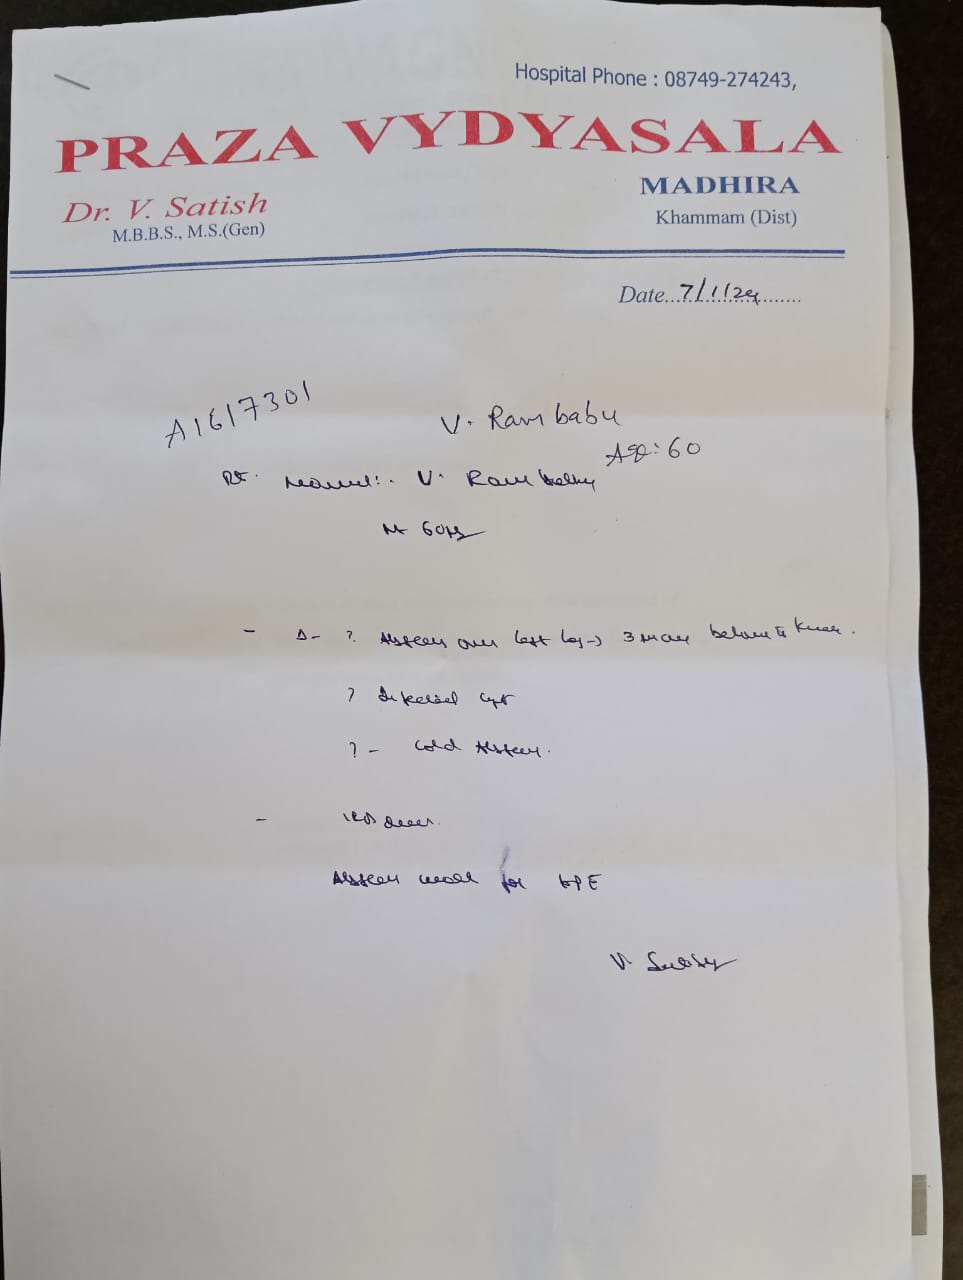 Hospital Phone : 08749-274243,
PRAZA VYDYASALA
Dr. V. Satish
M.B.B.S., M.S.(Gen)
MADHIRA
Khammam (Dist)
Date...7/1/24.......
A1617301
V. Rambabu
Age: 60
Pt. Name:. V. Rambabu
- Δ- ? Abscess over left leg → below knee.
? cyst
? - cold Abscess.
-
Abscess wall for HPE
V. Satish